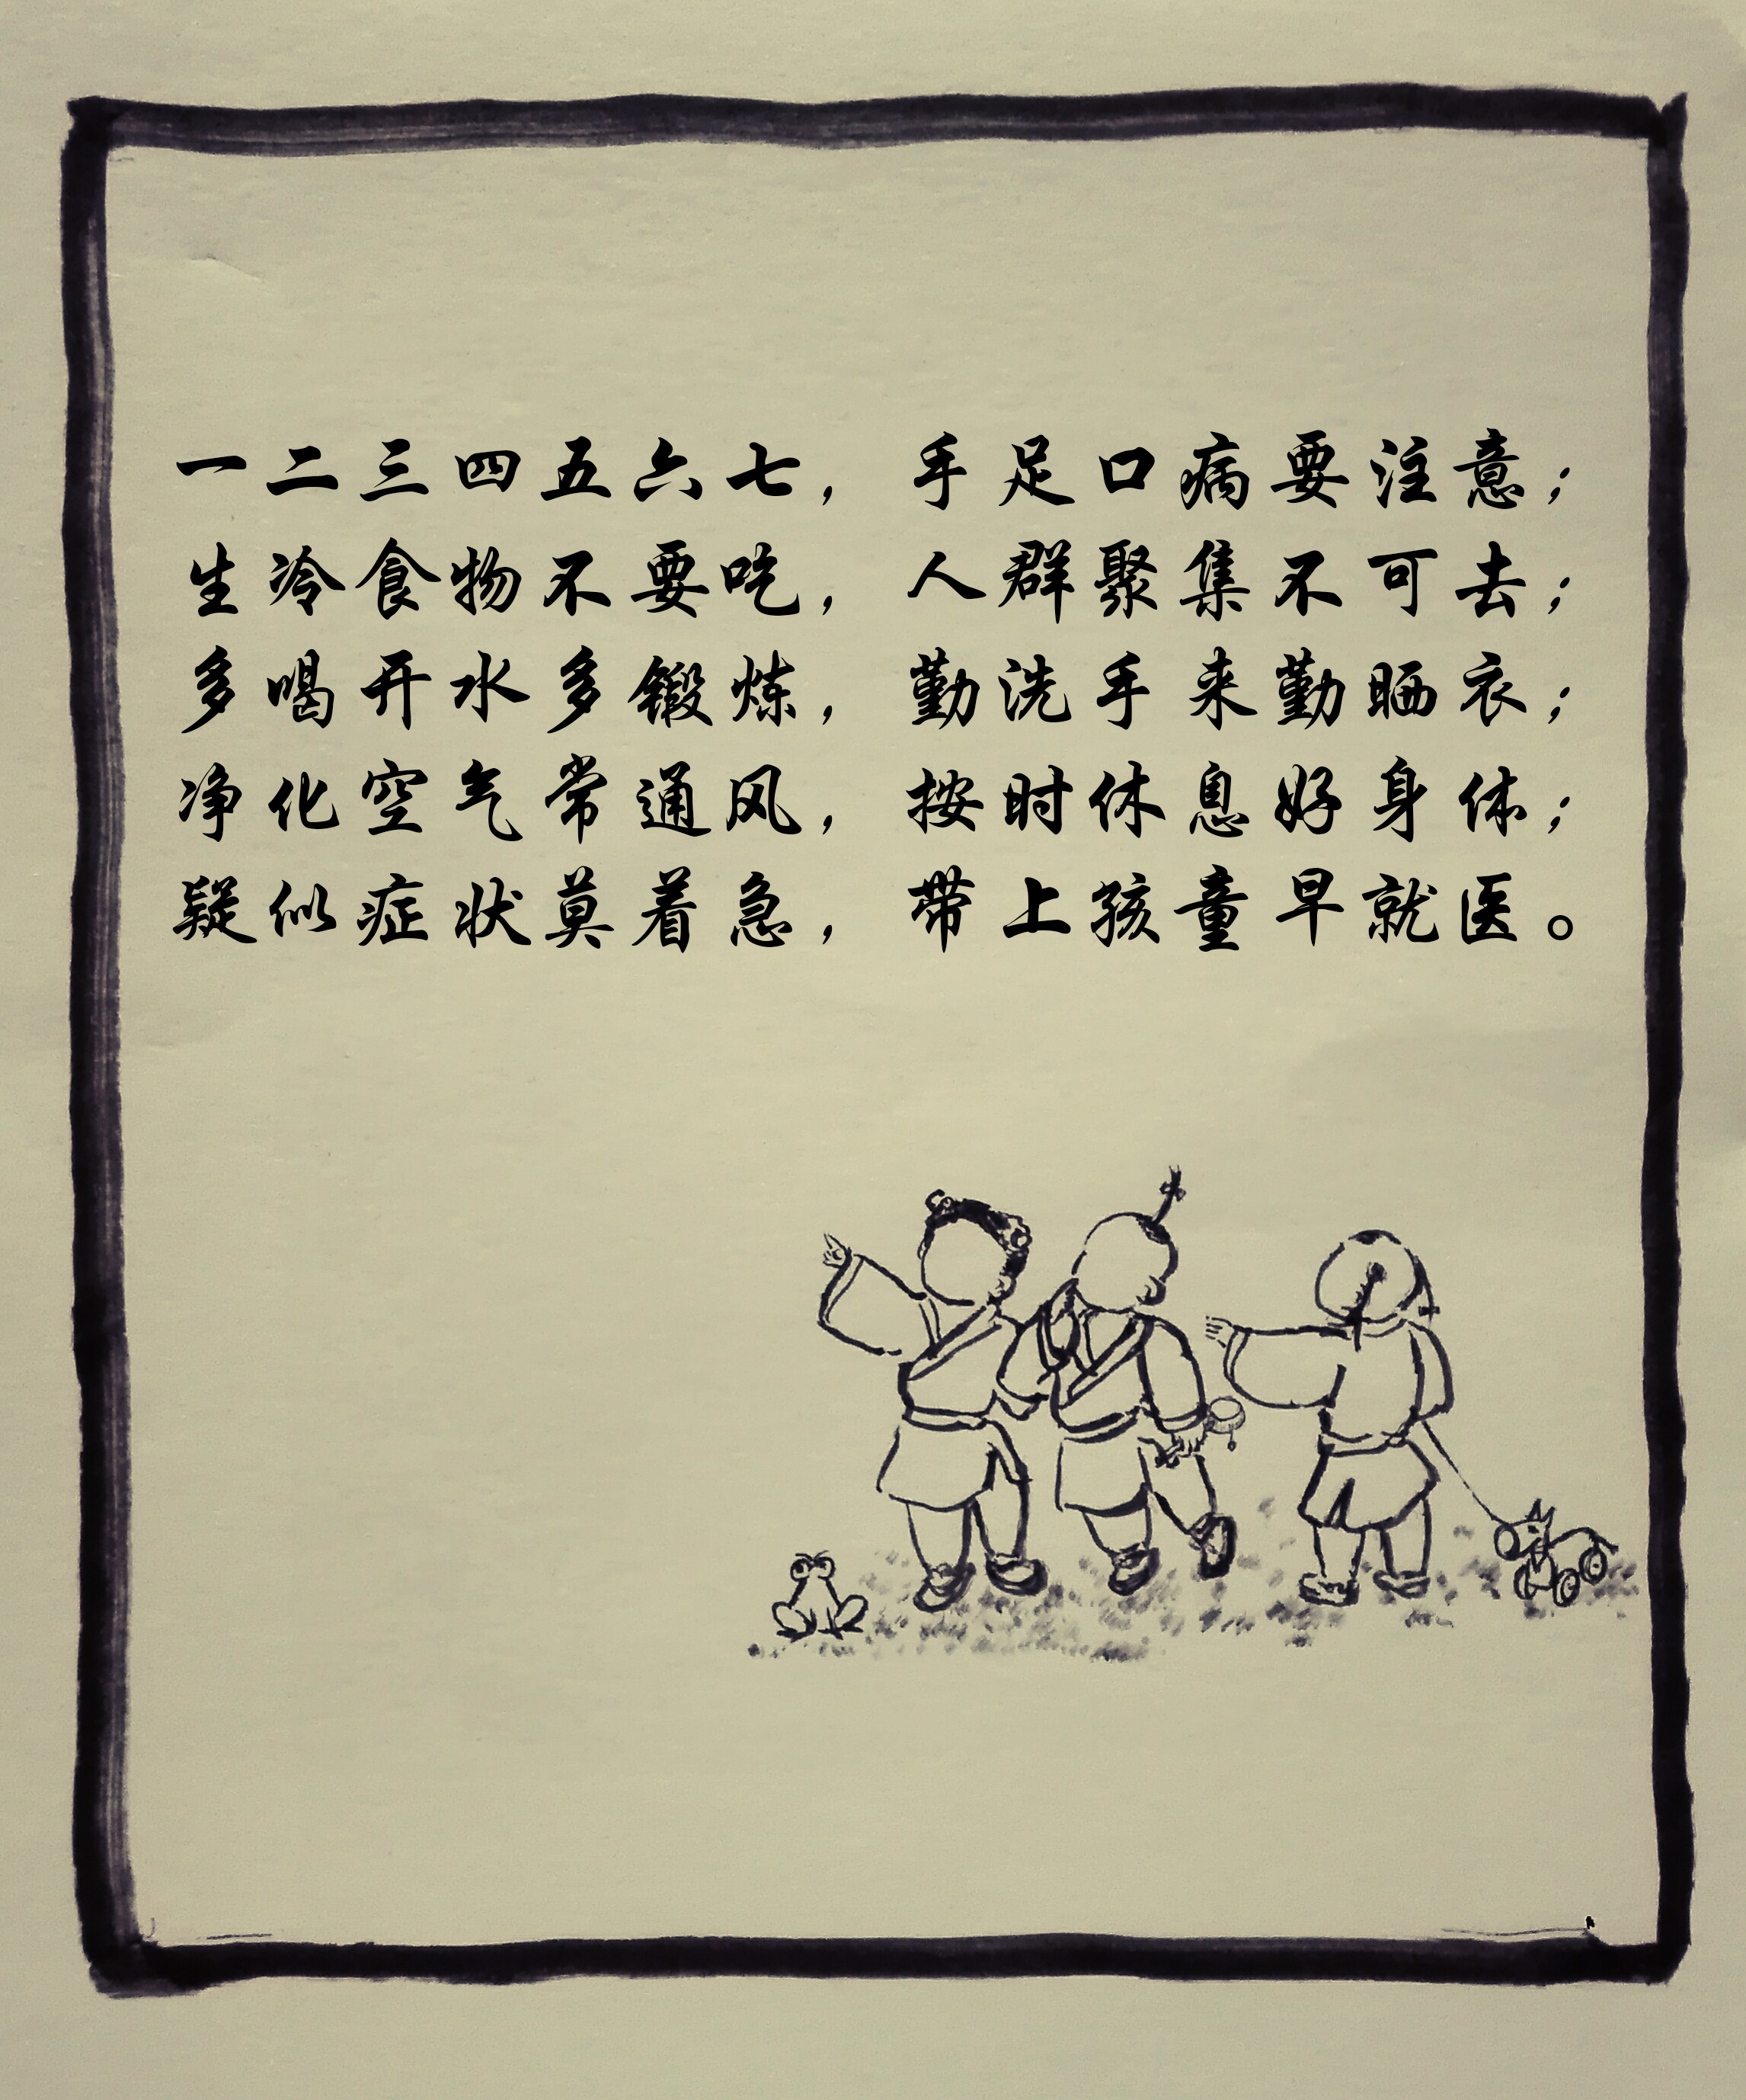 一二三四五六七，手足口病要注意；
生冷食物不要吃，人群聚集不可去；
多喝开水多锻炼，勤洗手来勤晒衣；
净化空气常通风，按时休息好身体；
疑似症状莫着急，带上孩童早就医。